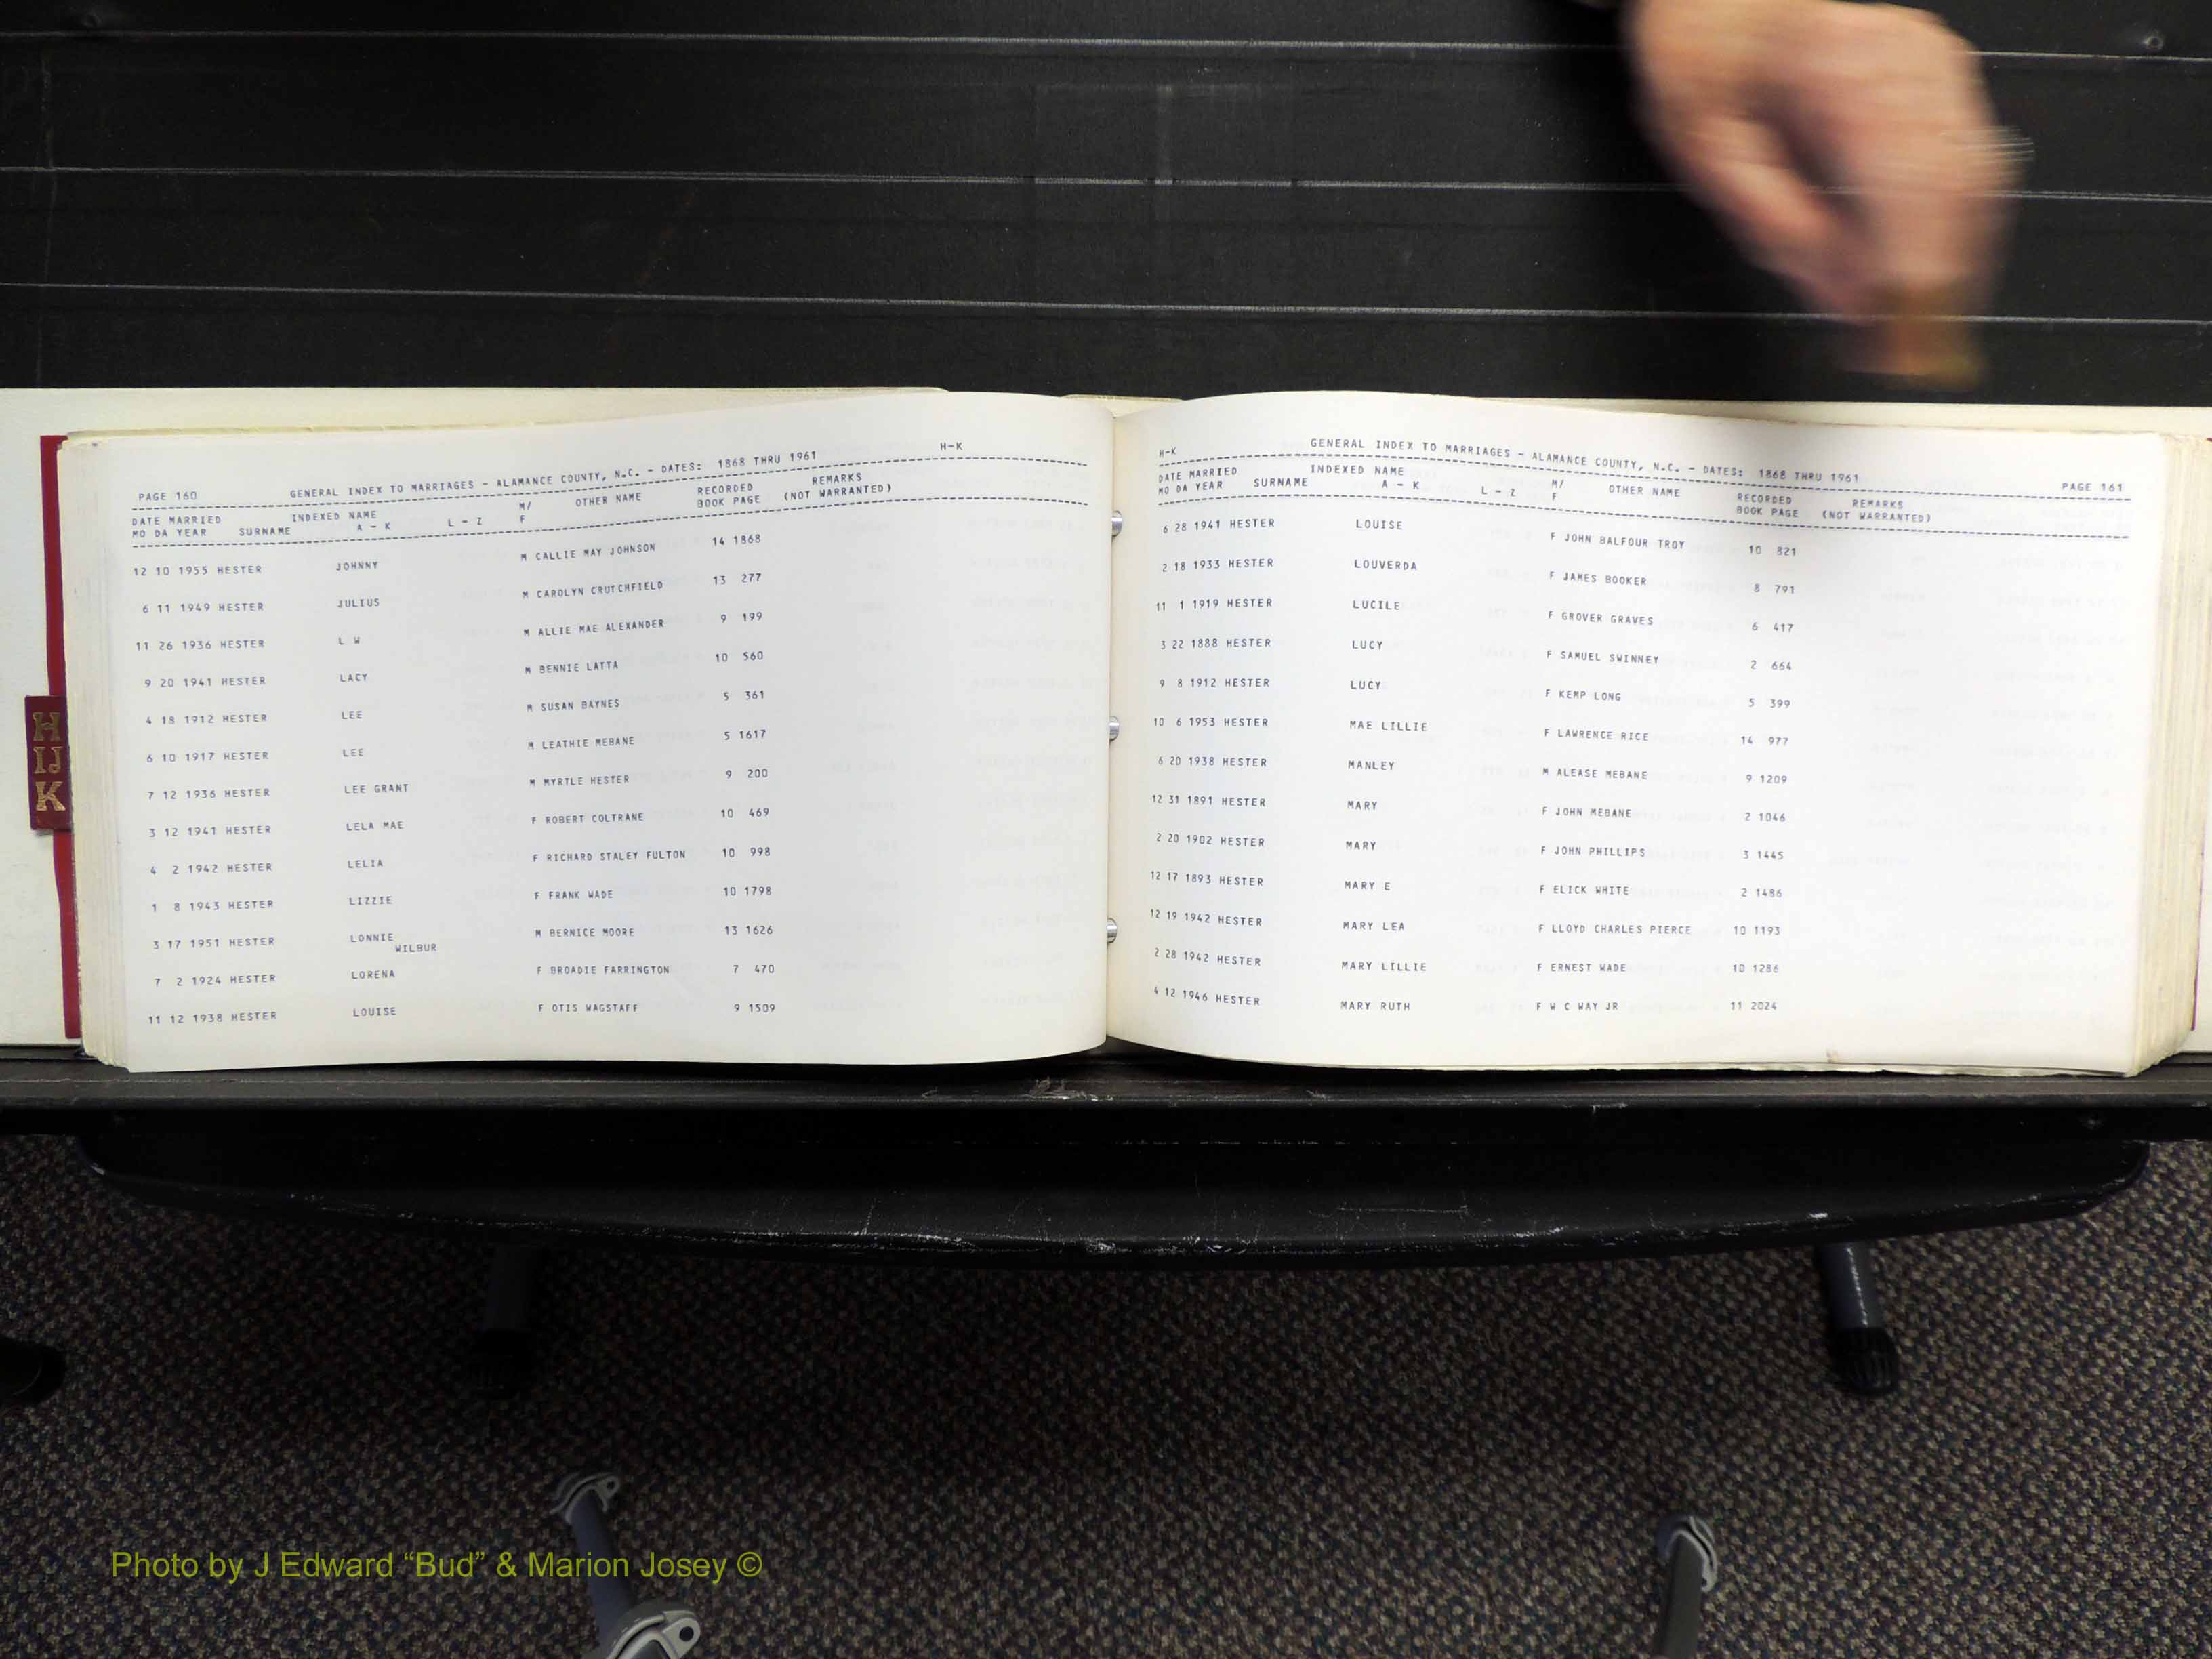 H-K
PAGE 160 GENERAL INDEX TO MARRIAGES - ALAMANCE COUNTY, N.C. - DATES: 1868 THRU 1961
DATE MARRIED INDEXED NAME M/ OTHER NAME RECORDED REMARKS
MO DA YEAR SURNAME A - K L - Z F BOOK PAGE (NOT WARRANTED)
12 10 1955 HESTER JOHNNY M CALLIE MAY JOHNSON 14 1868
6 11 1949 HESTER JULIUS M CAROLYN CRUTCHFIELD 13 277
11 26 1936 HESTER L W M ALLIE MAE ALEXANDER 9 199
9 20 1941 HESTER LACY M BENNIE LATTA 10 560
4 18 1912 HESTER LEE M SUSAN BAYNES 5 361
6 10 1917 HESTER LEE M LEATHIE MEBANE 5 1617
7 12 1936 HESTER LEE GRANT M MYRTLE HESTER 9 200
3 12 1941 HESTER LELA MAE F ROBERT COLTRANE 10 469
4 2 1942 HESTER LELIA F RICHARD STALEY FULTON 10 998
1 8 1943 HESTER LIZZIE F FRANK WADE 10 1798
3 17 1951 HESTER LONNIE M BERNICE MOORE 13 1626
WILBUR
7 2 1924 HESTER LORENA F BROADIE FARRINGTON 7 470
11 12 1938 HESTER LOUISE F OTIS WAGSTAFF 9 1509
H-K GENERAL INDEX TO MARRIAGES - ALAMANCE COUNTY, N.C. - DATES: 1868 THRU 1961 PAGE 161
DATE MARRIED INDEXED NAME M/ OTHER NAME RECORDED REMARKS
MO DA YEAR SURNAME A - K L - Z F BOOK PAGE (NOT WARRANTED)
6 28 1941 HESTER LOUISE F JOHN BALFOUR TROY 10 821
2 18 1933 HESTER LOUVERDA F JAMES BOOKER 8 791
11 1 1919 HESTER LUCILE F GROVER GRAVES 6 417
3 22 1888 HESTER LUCY F SAMUEL SWINNEY 2 664
9 8 1912 HESTER LUCY F KEMP LONG 5 399
10 6 1953 HESTER MAE LILLIE F LAWRENCE RICE 14 977
6 20 1938 HESTER MANLEY M ALEASE MEBANE 9 1209
12 31 1891 HESTER MARY F JOHN MEBANE 2 1046
2 20 1902 HESTER MARY F JOHN PHILLIPS 3 1445
12 17 1893 HESTER MARY E F ELICK WHITE 2 1486
12 19 1942 HESTER MARY LEA F LLOYD CHARLES PIERCE 10 1193
2 28 1942 HESTER MARY LILLIE F ERNEST WADE 10 1286
4 12 1946 HESTER MARY RUTH F W C WAY JR 11 2024
H
IJ
K
Photo by J Edward “Bud” & Marion Josey ©